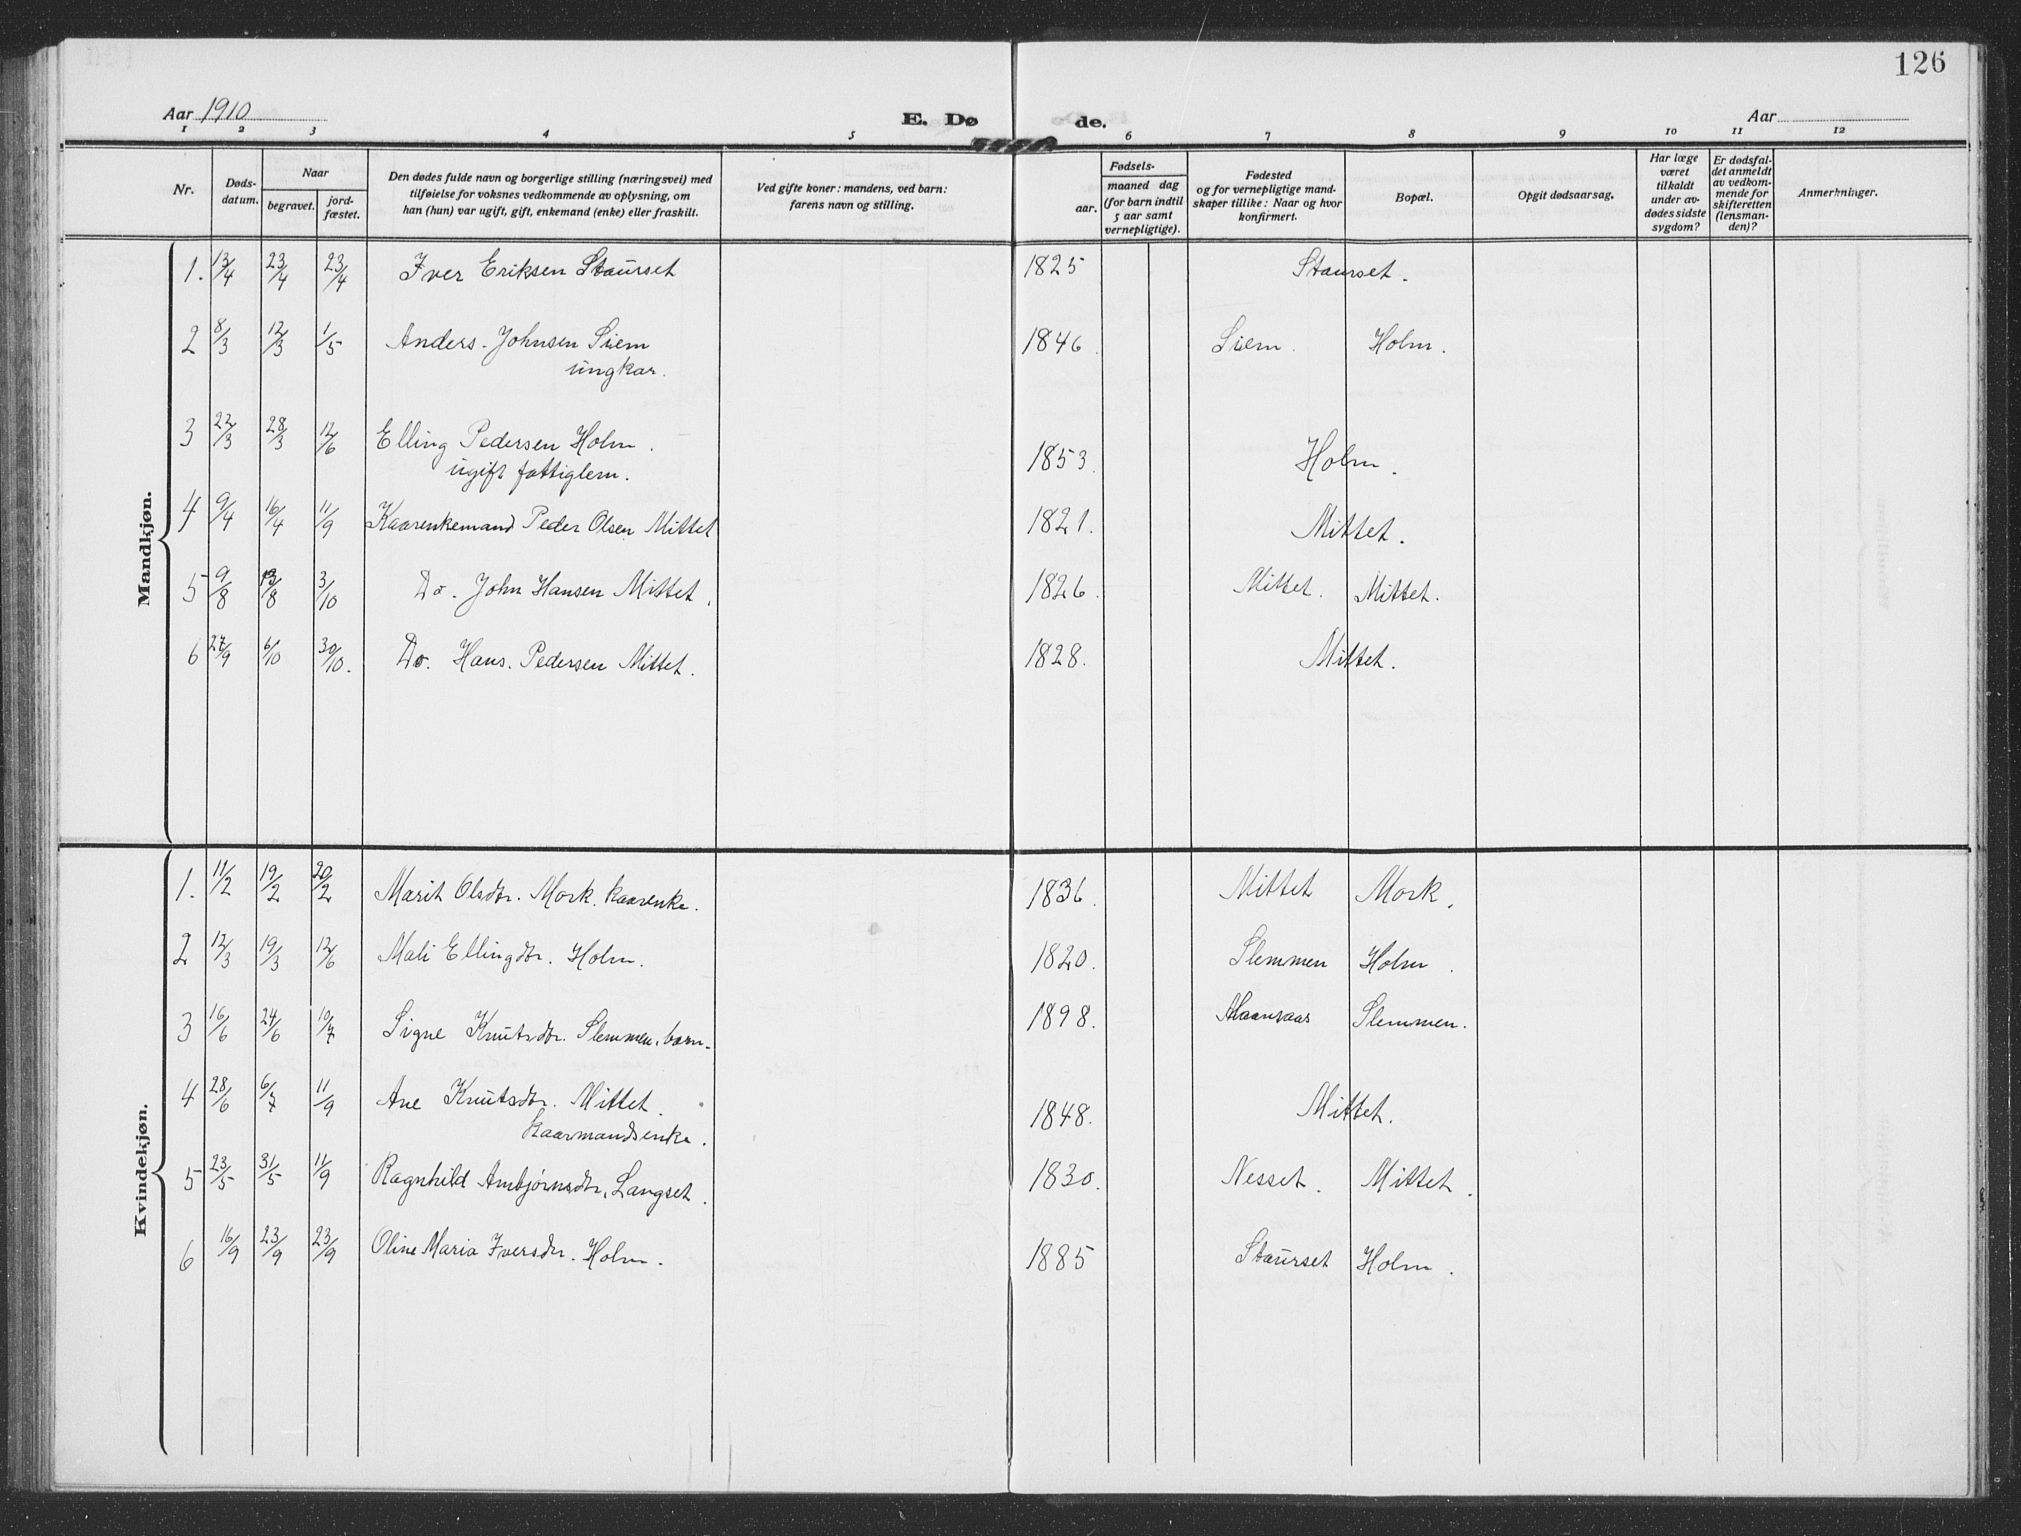 126
Aar 1910
E. Dø de.
Aar
1 2 3 4 5 6 7 8 9 10 11 12
Nr.
Døds-
datum.
Naar
begravet.
jord-
fæstet.
Den dødes fulde navn og borgerlige stilling (næringsvei) med
tilføielse for voksnes vedkommende av oplysning, om
han (hun) var ugift, gift, enkemand (enke) eller fraskilt.
Ved gifte koner: mandens, ved barn:
farens navn og stilling.
Fødsels-
aar.
maaned dag
(for barn indtil
5 aar samt
vernepligtige).
Fødested
og for vernepligtige mand-
skaper tillike: Naar og hvor
konfirmert.
Bopæl.
Opgit dødsaarsag.
Har læge
været
tilkaldt
under av-
dødes sidste
sygdom?
Er dødsfal-
det anmeldt
av vedkom-
mende for
skifteretten
(lensman-
den)?
Anmerkninger.
Mandkjøn.
1. 13/4 23/4 23/4 Iver Eriksen Staurset 1825 Staurset.
2 8/3 12/3 1/5 Anders Johnsen Siem 1846. Siem. Holm.
ungkar.
3 22/3 28/3 12/6 Elling Pedersen Holm. 1853. Holm.
ugift fattiglem.
4 9/4 16/4 11/9 Kaarenkemand Peder Olsen Mittet 1821. Mittet.
5 9/8 /8 3/10 Do. John Hansen Mittet. 1826. Mittet. Mittet.
6 27/9 6/10 30/10. Do. Hans. Pedersen Mittet. 1828. Mittet.
Kvindekjøn.
1. 11/2 19/2 20/2 Marit Olsdtr. Mork. kaarenke. 1836. Mittet Mork.
2 12/3 19/3 12/6 Mali Ellingdtr. Holm. 1820. Slemmen Holm.
3 16/6 24/6 10/7 Signe Knutsdtr. Slemmen, barn. 1898. Slemmen.
4 28/6 6/7 11/9 Ane Knutsdtr. Mittet. 1848. Mittet.
kaarmandsenke.
5 23/5 31/5 11/9 Ragnhild Ambjørnsdtr. Langset. 1830. Nesset. Mittet.
6 16/9 23/9 23/9 Oline Maria Iversdtr. Holm. 1885 Staurset Holm.